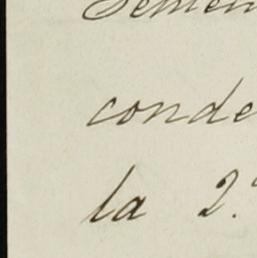 conde
la 2.